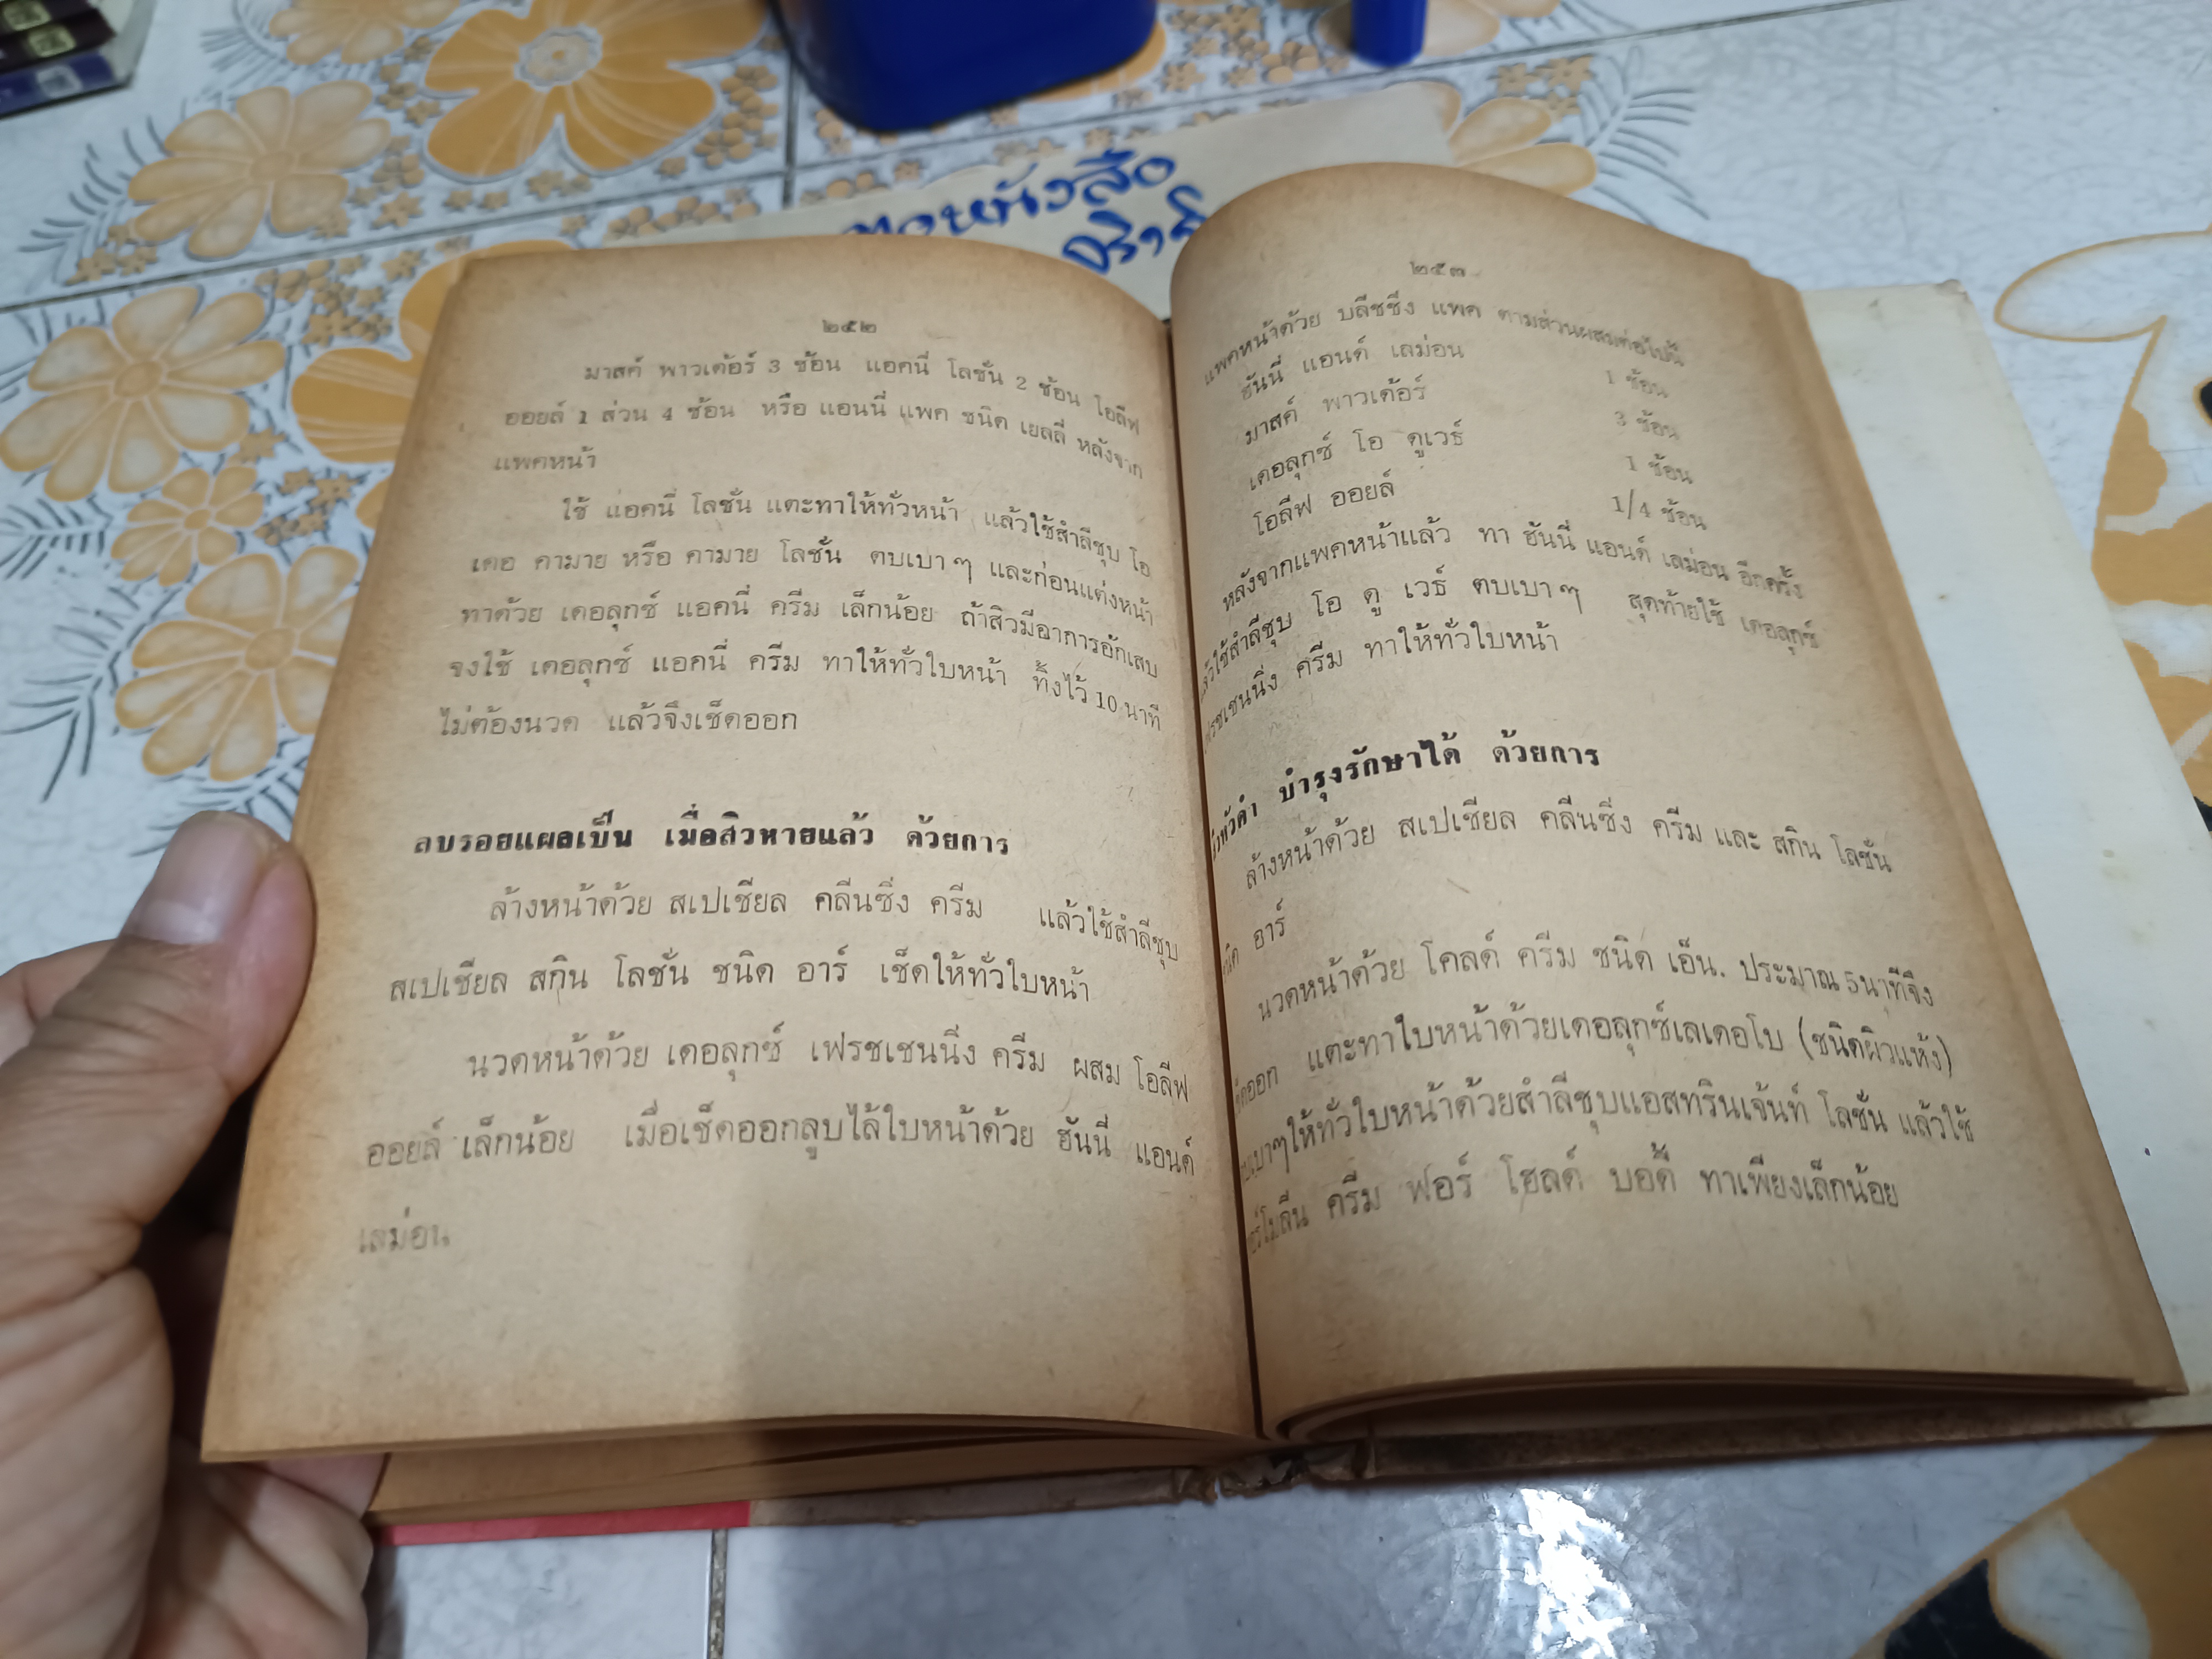 ๒๕๒
มาสค์ พาวเด้อร์ 3 ช้อน แอคนี่ โลชั่น 2 ช้อน โอลีฟ
ออยล์ 1 ส่วน 4 ช้อน หรือ แอนนี่ แพค ชนิด เยลลี่ หลังจาก
แพคหน้า
ใช้ แอคนี่ โลชั่น แตะทาให้ทั่วหน้า แล้วใช้สำลีชุบ โอ
เดอ คามาย หรือ คามาย โลชั่น ตบเบา ๆ และก่อนแต่งหน้า
ทาด้วย เดอลุกซ์ แอคนี่ ครีม เล็กน้อย ถ้าสิวมีอาการอักเสบ
จงใช้ เดอลุกซ์ แอคนี่ ครีม ทาให้ทั่วใบหน้า ทิ้งไว้ 10 นาที
ไม่ต้องนวด แล้วจึงเช็ดออก
ลบรอยแผลเป็น เมื่อสิวหายแล้ว ด้วยการ
ล้างหน้าด้วย สเปเชียล คลีนซิ่ง ครีม แล้วใช้สำลีชุบ
สเปเชียล สกิน โลชั่น ชนิด อาร์ เช็ดให้ทั่วใบหน้า
นวดหน้าด้วย เดอลุกซ์ เฟรชเชนนิ่ง ครีม ผสม โอลีฟ
ออยล์ เล็กน้อย เมื่อเช็ดออกลูบไล้ใบหน้าด้วย ฮันนี่ แอนด์
เลม่อน
๒๕๓
แพคหน้าด้วย บลีชชีง แพค ตามส่วนผสมต่อไปนี้
ฮันนี่ แอนด์ เลม่อน 1 ช้อน
มาสค์ พาวเด้อร์ 3 ช้อน
เดอลุกซ์ โอ ดูเวร์ 1 ช้อน
โอลีฟ ออยล์ 1/4 ช้อน
หลังจากแพคหน้าแล้ว ทา ฮันนี่ แอนด์ เลม่อน อีกครั้ง
แล้วใช้สำลีชุบ โอ ดู เวร์ ตบเบา ๆ สุดท้ายใช้ เดอลุกซ์
เฟรชเชนนิ่ง ครีม ทาให้ทั่วใบหน้า
บำรุงรักษาได้ ด้วยการ
ล้างหน้าด้วย สเปเชียล คลีนซิ่ง ครีม และ สกิน โลชั่น
อาร์
นวดหน้าด้วย โคลด์ ครีม ชนิด เอ็น. ประมาณ 5 นาทีจึง
แตะทาใบหน้าด้วยเดอลุกซ์เลเดอโบ (ชนิดผิวแห้ง)
ให้ทั่วใบหน้าด้วยสำลีชุบแอสทรินเจ้นท์ โลชั่น แล้วใช้
ครีม ฟอร์ โฮลด์ บอดี้ ทาเพียงเล็กน้อย